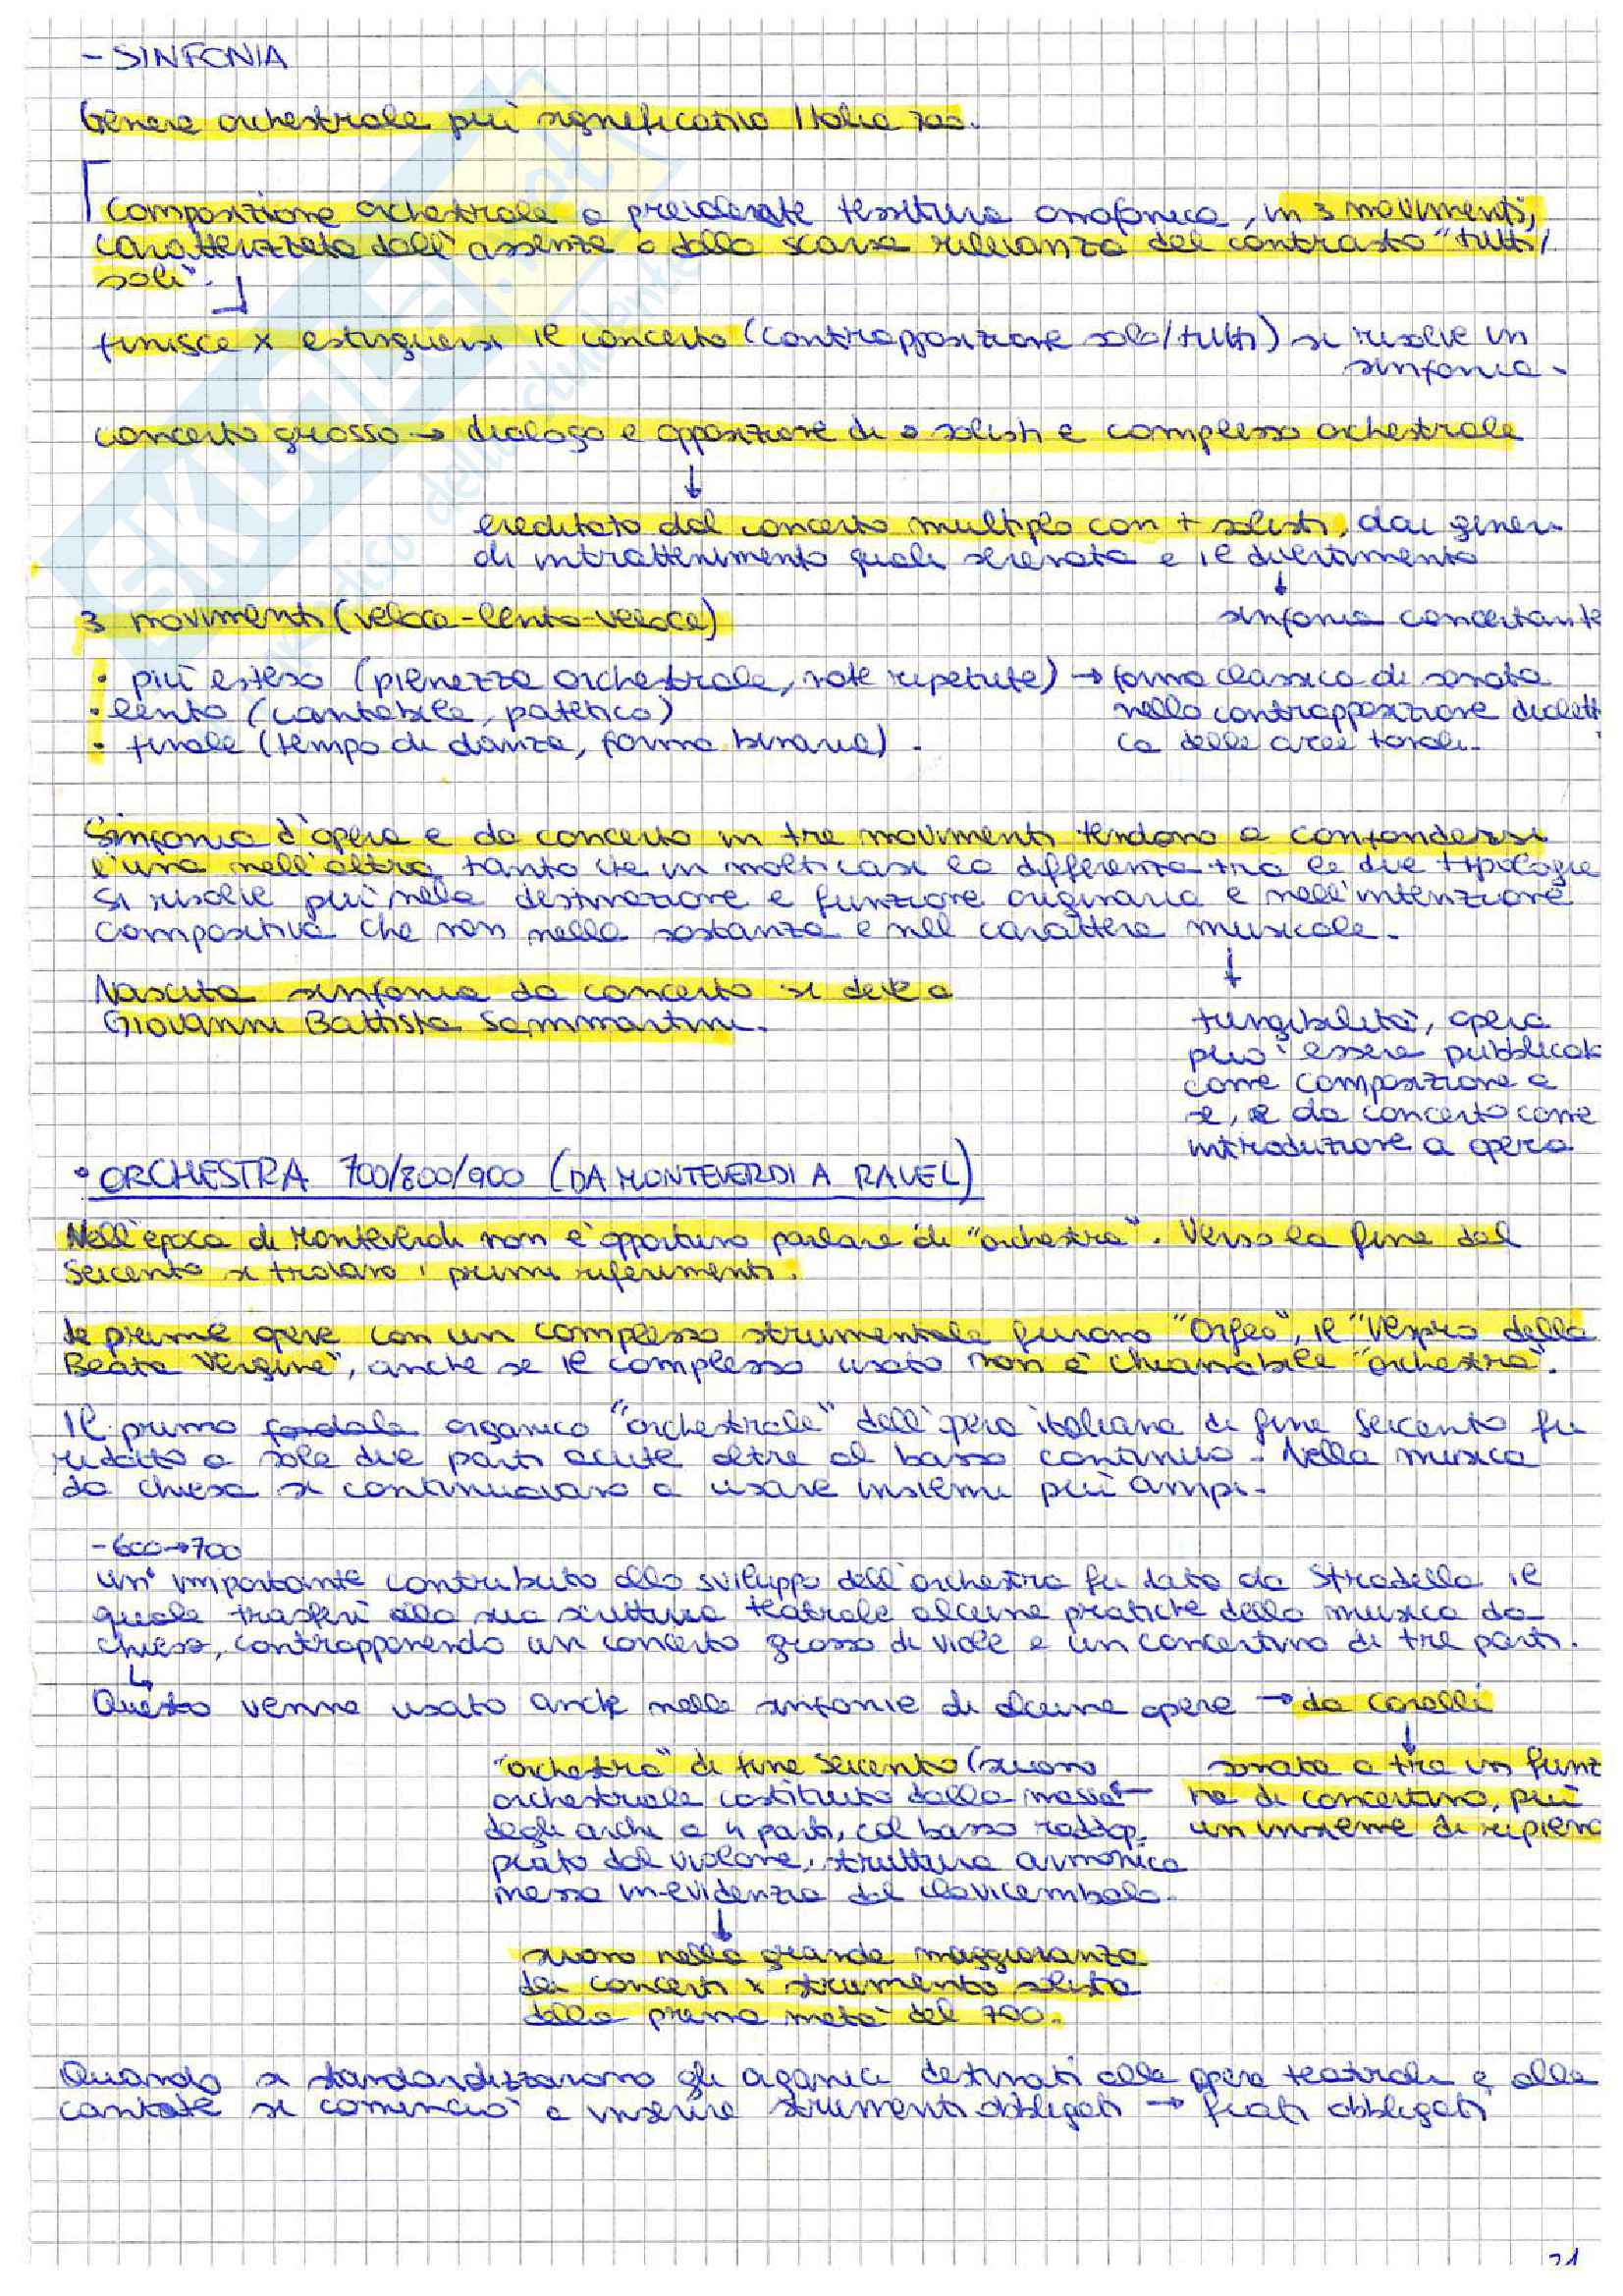 - SINFONIA
Genere orchestrale più significativo Italia 700.
Composizione orchestrale a prevalente tessitura omofonica, in 3 movimenti,
caratterizzata dall'assenza o dalla scarsa rilevanza del contrasto "tutti/
soli".
finisce x estinguersi il concerto (contrapposizione solo/tutti) si risolve in
sinfonia.
concerto grosso → dialogo e opposizione di solisti e complesso orchestrale
↓
ereditato dal concerto multiplo con + solisti, dai generi
di intrattenimento quali serenata e il divertimento
↓
sinfonia concertante
3 movimenti (veloce-lento-veloce)
• più esteso (pienezza orchestrale, note ripetute) → forma classica di sonata
nella contrapposizione dialetti
ca delle aree tonali.
• lento (cantabile, patetico)
• finale (tempo di danza, forma binaria).
Sinfonia d'opera e da concerto in tre movimenti tendono a confondersi
l'una nell'altra tanto che in molti casi la differenza tra le due tipologie
si risolve più nella destinazione e funzione originaria e nell'intenzione
compositiva che non nella sostanza e nel carattere musicale.
↓
Nascita sinfonia da concerto si deve a
Giovanni Battista Sammartini.
fungibilità, opera
può essere pubblicata
come composizione a
se, e da concerto come
introduzione a opera
• ORCHESTRA 700/800/900 (DA MONTEVERDI A RAVEL)
Nell'epoca di Monteverdi non è opportuno parlare di "orchestra". Verso la fine del
Seicento si trovano i primi riferimenti.
Le prime opere con un complesso strumentale furono "Orfeo", il "Vespro della
Beata Vergine", anche se il complesso usato non è chiamabile "orchestra".
Il primo organico "orchestrale" dell'opera italiana di fine Seicento fu
ridotto a sole due parti acute oltre al basso continuo. Nella musica
da chiesa si continuavano a usare insiemi più ampi.
- 600→700
un' importante contributo allo sviluppo dell'orchestra fu dato da Stradella il
quale trasferì alla sua scrittura teatrale alcune pratiche della musica da
chiesa, contrapponendo un concerto grosso di viole e un concertino di tre parti.
Questo venne usato anche nelle sinfonie di alcune opere → da Corelli
↓
sonata a tre in funz
ne di concertino, più
un insieme di ripieno
"orchestra" di fine Seicento (suono
orchestrale costituito dalla massa ←
degli archi a 4 parti, col basso raddop-
piato dal violone, struttura armonica
messa in evidenza dal clavicembalo.
↓
suono nella grande maggioranza
dei concerti x strumento solista
della prima metà del 700.
Quando si standardizzarono gli organici destinati alle opere teatrali e alle
cantate si cominciò a inserire strumenti obbligati → fiati obbligati
21
SKUOLA.net